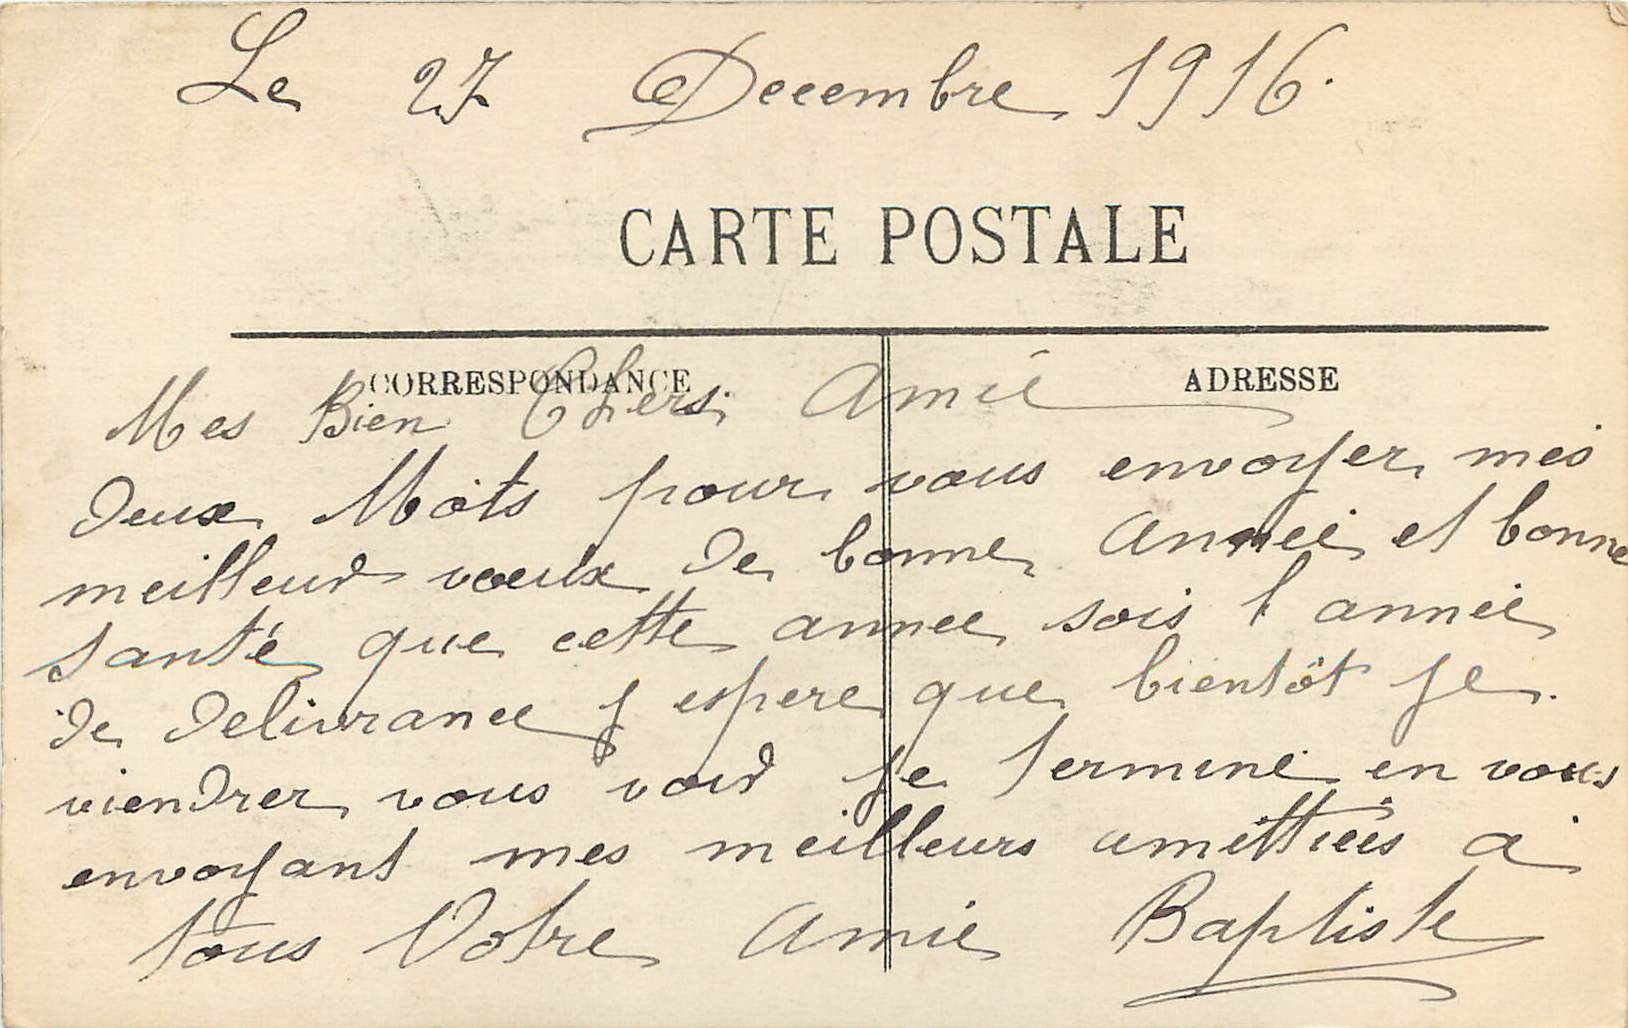 Le 27 Decembre 1916.
CARTE POSTALE
CORRESPONDANCE
ADRESSE
Mes Bien Chers Amie
deux Mots pour vous envoyer mes
meilleurs voeux de bonne Année et bonne
santé que cette annee sois l année
de delivrance j espere que bientôt je
viendrer vous voir je termine en vous
envoyant mes meilleurs amittiées a
tous Votre Amie Baptiste